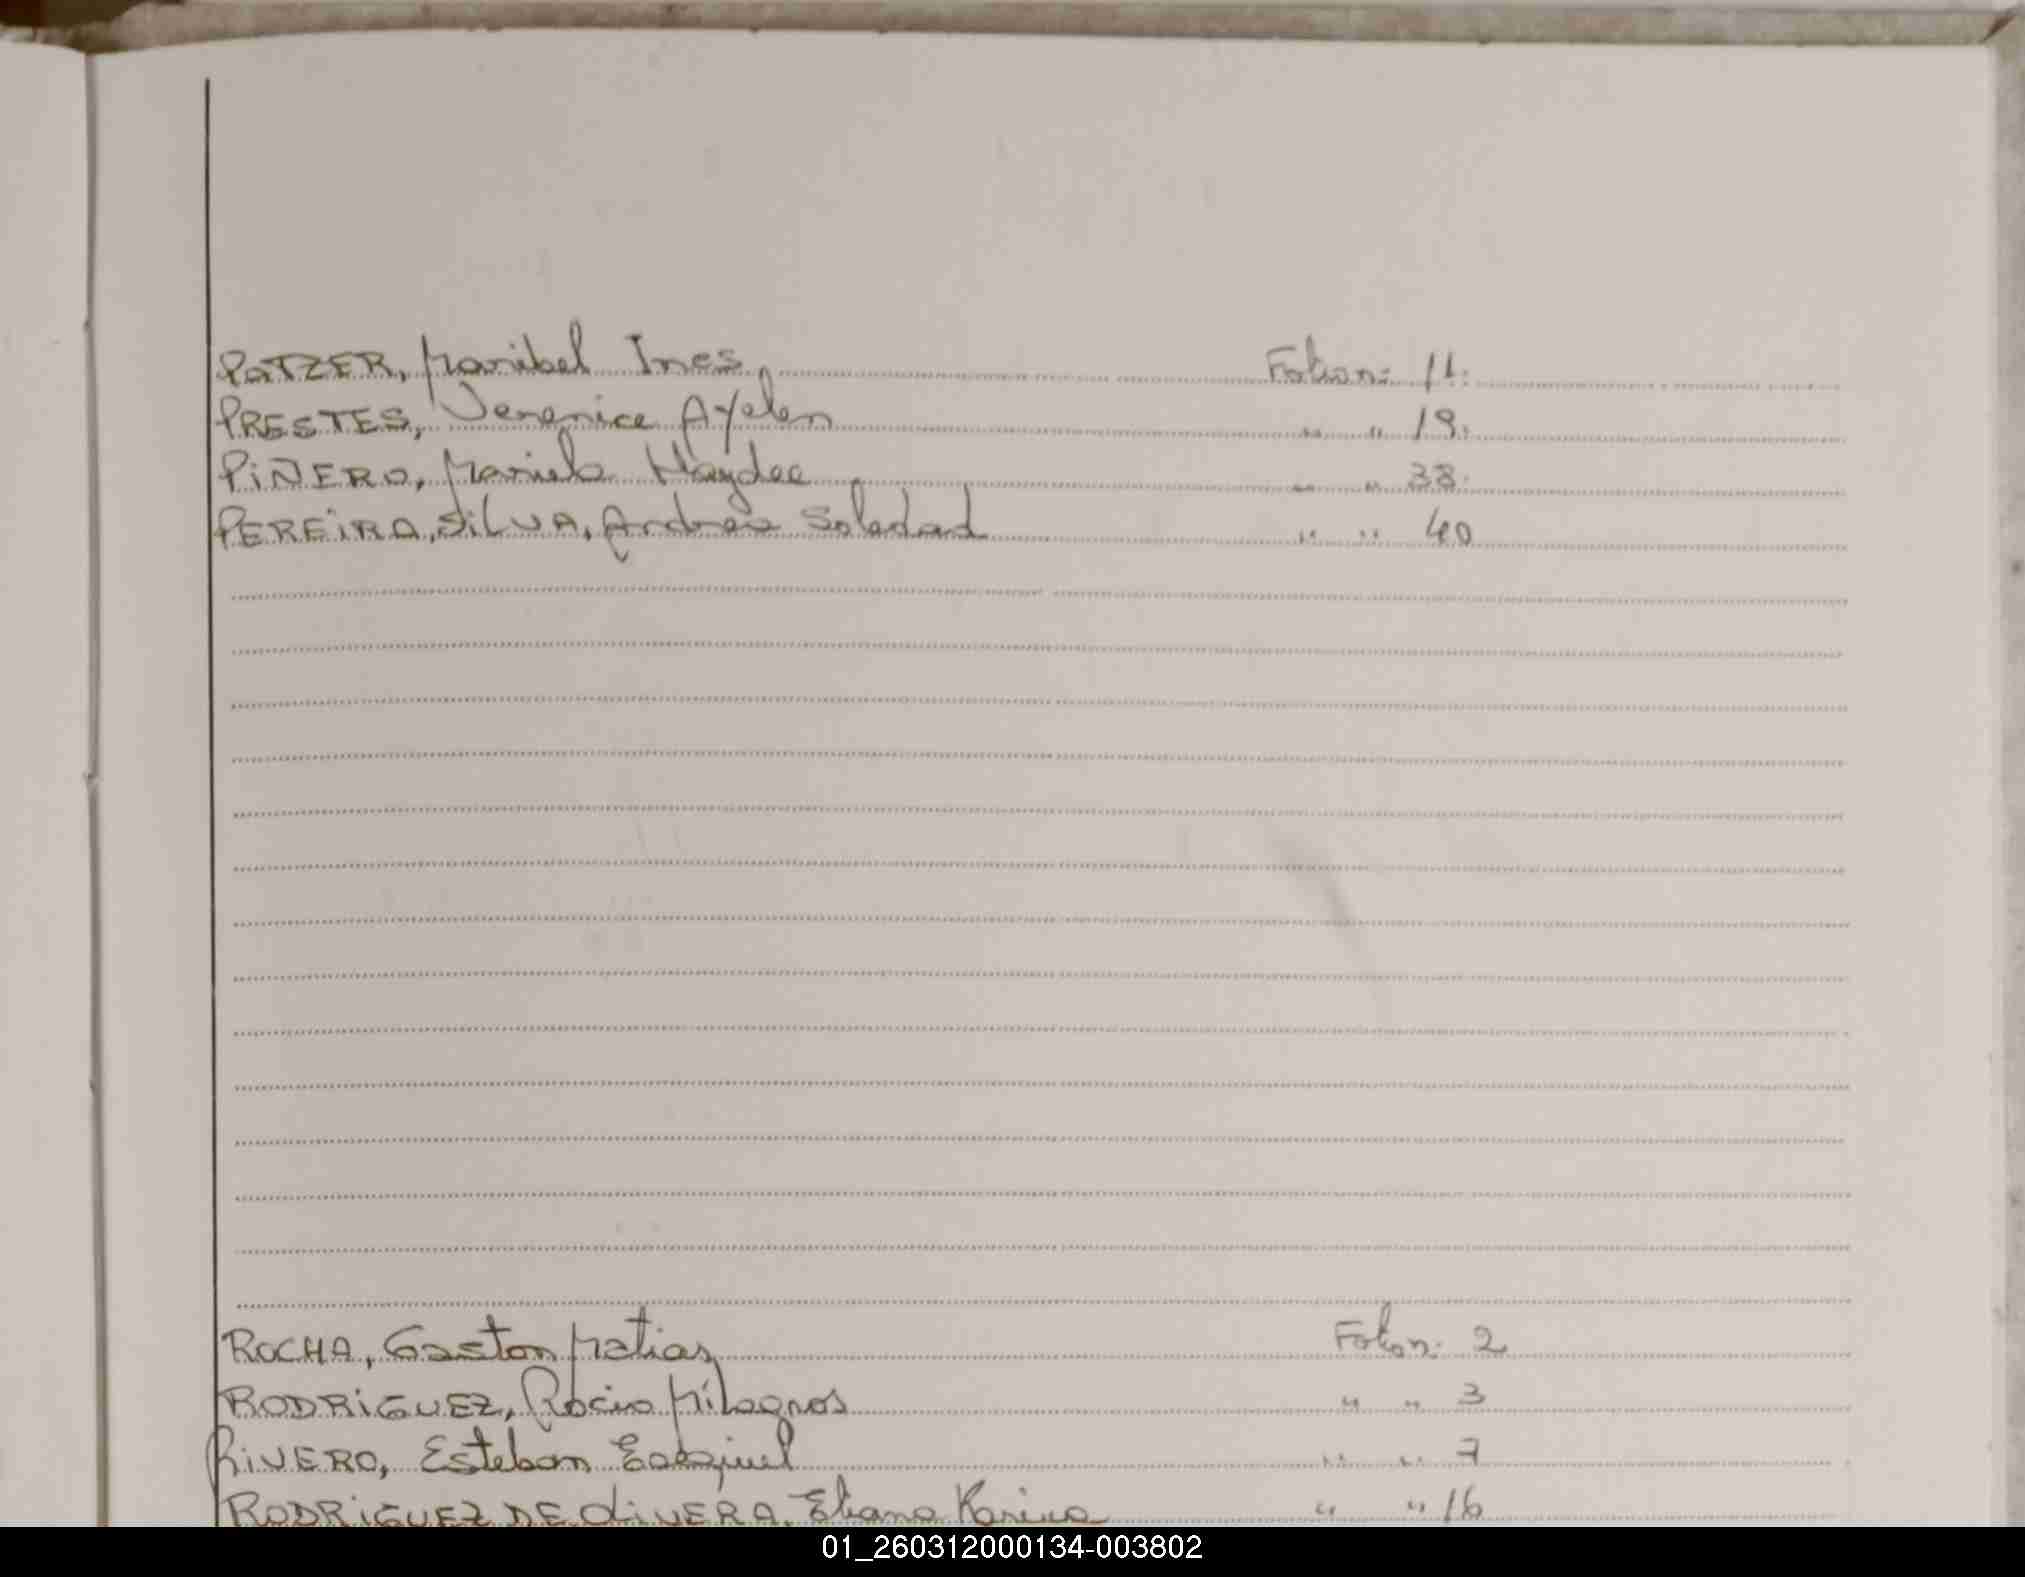 PATZER, Maribel Ines Folion: 11.
PRESTES, Jerenice Ayelen " " 19.
PIÑERO, Mariela Haydee " " 38.
PEREIRA, SILVA, Andrea Soledad " " 40
ROCHA, Gaston Matias Folion: 2
RODRIGUEZ, Rocio Milagros " " 3
RIVERO, Esteban Ezequiel " " 7
RODRIGUEZ DE OLIVERA, Eliana Karina " " 16
01_260312000134-003802